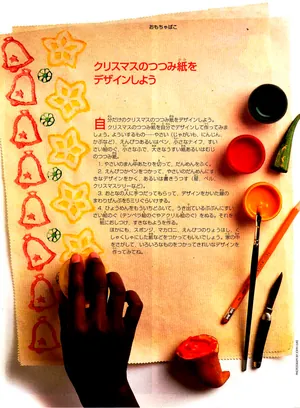 おもちゃばこ
クリスマスのつつみ紙を
デザインしよう
自分だけのクリスマスのつつみ紙をデザインしよう。
クリスマスのつつみ紙を自分でデザインして作ってみま
しょう。よういするもの──やさい（じゃがいも、にんじん、
かぶなど）、えんぴつあるいはペン、小さなナイフ、すい
さい絵のぐ、小さなふで、大きなうすい紙あるいはむじ
のつつみ紙。
1. やさいのまん中あたりを切って、だんめんをふく。
2. えんぴつかペンをつかって、やさいのだんめんにす
きなデザインをかく、あるいは書きうつす（星、ベル、
クリスマスツリーなど）。
3. おとなの人に手つだってもらって、デザインをかいた線の
まわりぜんぶを5ミリぐらいけずる。
4. ひょうめんをもういちどふいて、うき出ているぶぶんにすい
さい絵のぐ（テンペラ絵のぐやアクリル絵のぐ）をぬる。それを
紙におしつけ、すきなもようを作る。
ほかにも、スポンジ、マカロニ、えんぴつのりょうはし、く
しゃくしゃにした紙などをつかってもいいでしょう。家の中
をさがして、いろいろなものをつかってきれいなデザインを
作ってみてね。